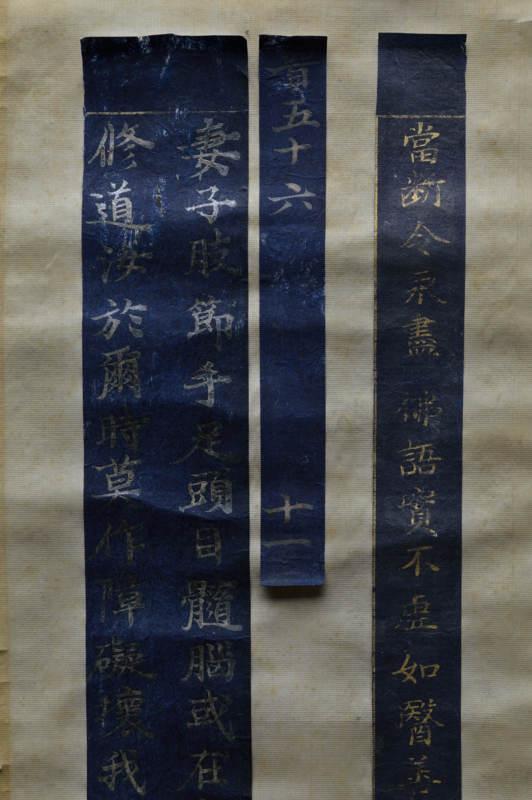 當断令永盡 佛語實不虚 如醫善
音五十六 十一
妻子肢節手足頭目髓腦或在
修道汝於爾時莫作障礙壞我